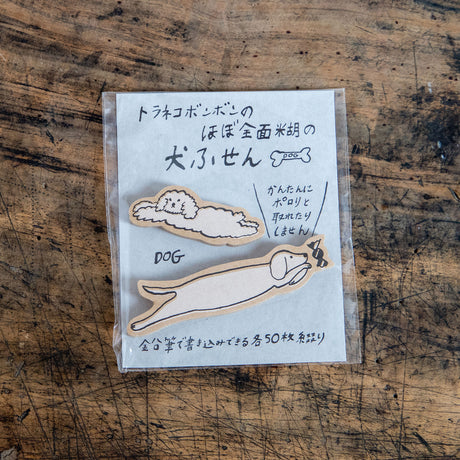 トラネコボンボンの
ほぼ全面糊の
犬ふせん
DOG
かんたんに
ポロリと
取れたり
しません
DOG
鉛筆で書き込みできる各50枚綴り